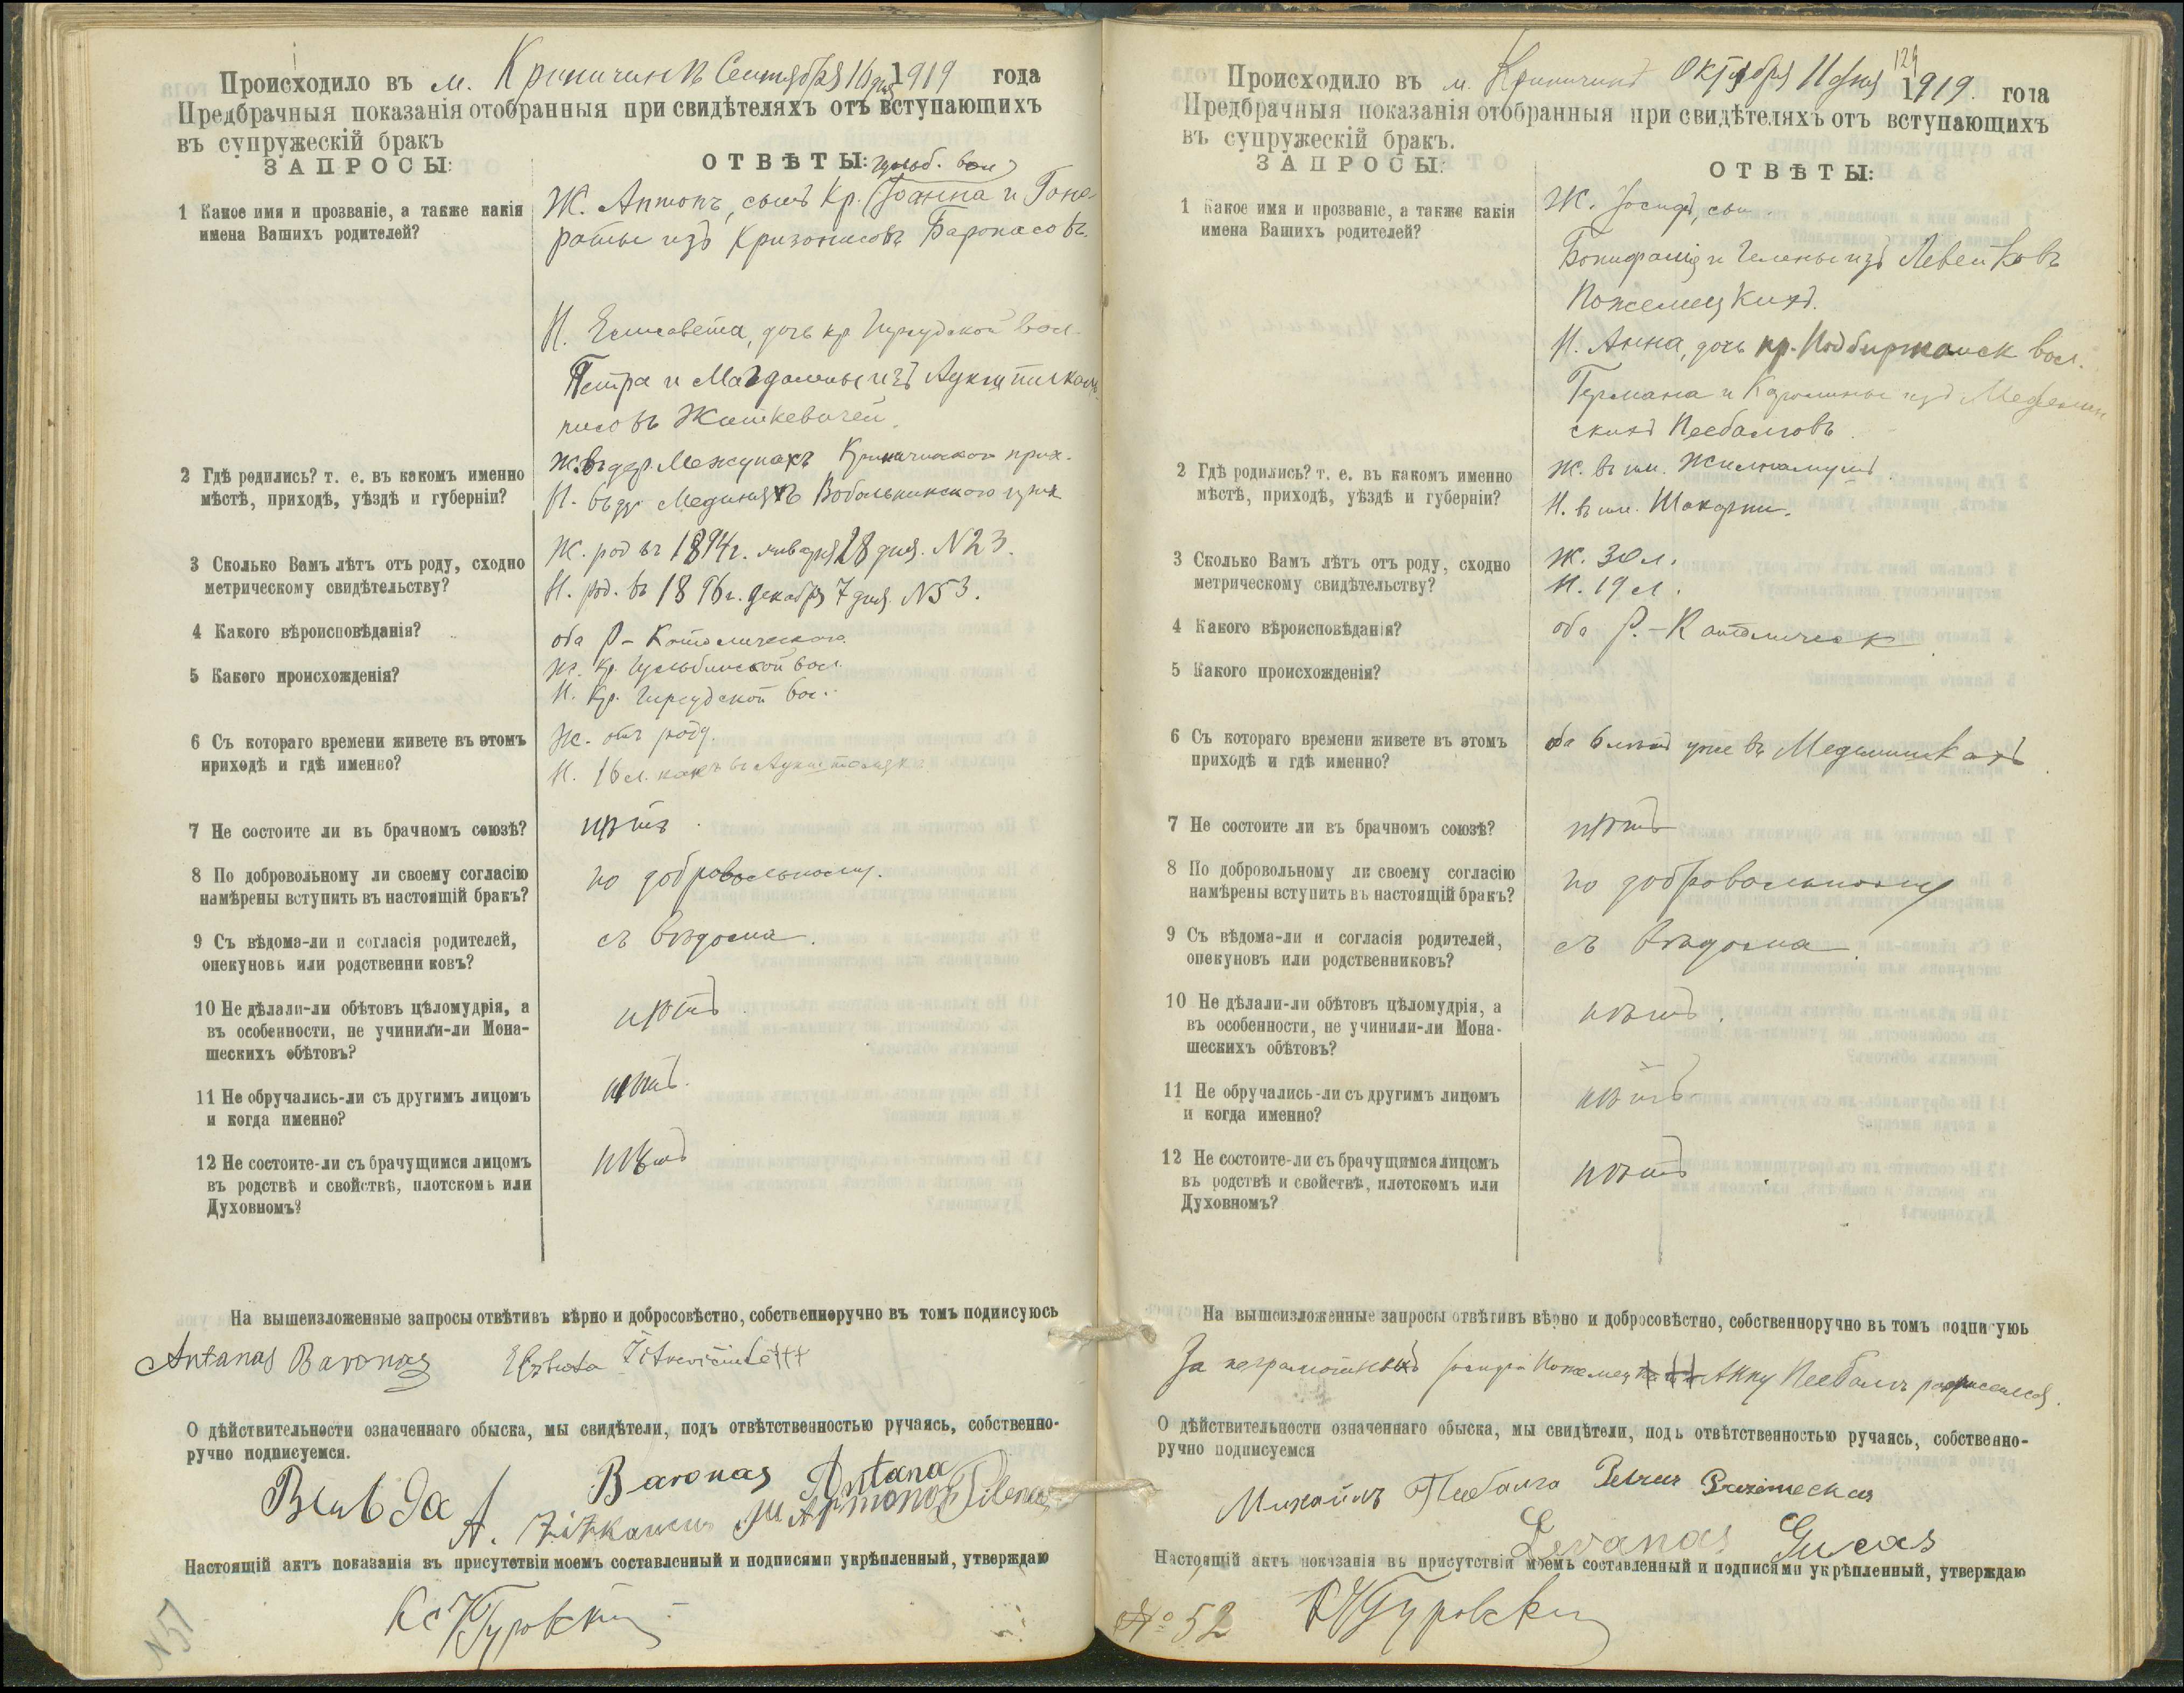 Происходило въ м. Криничинѣ Сентября 16 дня 1919 года
Предбрачныя показанія отобранныя при свидѣтеляхъ отъ вступающихъ
въ супружескій бракъ
ЗАПРОСЫ:
ОТВѢТЫ:
1 Какое имя и прозваніе, а также какія
имена Вашихъ родителей?
Ж. Антонъ, сынъ Кр. Іоанна и Гоно-
раты изъ Кризонисовъ Баронасовъ.
Н. Елисавета, дочь кр. Гиргудской вол.
Петра и Магдалены изъ
Житкевичей.
2 Гдѣ родились? т. е. въ какомъ именно
мѣстѣ, приходѣ, уѣздѣ и губерніи?
Ж. въ дер. Межупахъ Криничинскаго прих.
Н. въ дер. Мединяхъ Вобольникскаго
3 Сколько Вамъ лѣтъ отъ роду, сходно
метрическому свидѣтельству?
Ж. род въ 1894 г. января 28 дня. N 23.
Н. род. въ 1896 г. декабря 7 дня. N 53.
4 Какого вѣроисповѣданія?
оба Р-Католическаго
5 Какого происхожденія?
Ж. Кр. вол.
Н. Кр. Гиргудской вол.
6 Съ котораго времени живете въ этомъ
приходѣ и гдѣ именно?
Ж. отъ роду.
Н. 16 л.
7 Не состоите ли въ брачномъ союзѣ?
нѣтъ.
8 По добровольному ли своему согласію
намѣрены вступить въ настоящій бракъ?
по добровольному.
9 Съ вѣдома-ли и согласія родителей,
опекуновь или родственни ковъ?
съ вѣдома.
10 Не дѣлали-ли обѣтовъ цѣломудрія, а
въ особенности, не учинили-ли Мона-
шескихъ обѣтовъ?
нѣтъ
11 Не обручались-ли съ другимъ лицомъ
и когда именно?
нѣтъ.
12 Не состоите-ли съ брачущимся лицомъ
въ родствѣ и свойствѣ, плотскомь или
Духовномъ?
нѣтъ
На вышеизложенные запросы отвѣтивъ вѣрно и добросовѣстно, собственноручно въ томъ подписуюсь
Antanas Baronas Elzbieta +++
О дѣйствительности означеннаго обыска, мы свидѣтели, подъ отвѣтственностью ручаясь, собственно-
ручно подписуемся.
Baronas Antana
A.
Настоящій актъ показанія въ присутствіи моемъ составленный и подписями укрѣпленный, утверждаю
N 51
129
Происходило въ м. Криничинѣ Октября 11 дня 1919. года
Предбрачныя показанія отобранныя при свидѣтеляхъ отъ вступающихъ
въ супружескій бракъ.
ЗАПРОСЫ:
ОТВѢТЫ:
1 Какое имя и прозваніе, а также какія
имена Вашихъ родителей?
Ж. Іосифъ, сынъ
Бонифація и Гелены изъ
Пожемецкихъ.
Н. Анна, дочь кр. Подбиржанск вол.
Германа и Каролины изъ
скихъ Пеебалговъ.
2 Гдѣ родились? т. е. въ какомъ именно
мѣстѣ, приходѣ, уѣздѣ и губерніи?
Ж. въ им.
Н. въ им.
3 Сколько Вамъ лѣтъ отъ роду, сходно
метрическому свидѣтельству?
Ж. 30 л.
Н. 19 л.
4 Какого вѣроисповѣданія?
оба Р.-Католическ
5 Какого происхожденія?
6 Съ котораго времени живете въ этомъ
приходѣ и гдѣ именно?
оба 6 лѣтъ уже въ
7 Не состоите ли въ брачномъ союзѣ?
нѣтъ
8 По добровольному ли своему согласію
намѣрены вступить въ настоящій бракъ?
по добровольному
9 Съ вѣдома-ли и согласія родителей,
опекуновъ или родственниковъ?
съ вѣдома.
10 Не дѣлали-ли обѣтовъ цѣломудрія, а
въ особенности, не учинили-ли Мона-
шескихъ обѣтовъ?
нѣтъ.
11 Не обручались-ли съ другимъ лицомъ
и когда именно?
нѣтъ
12 Не состоите-ли съ брачущимся лицомъ
въ родствѣ и свойствѣ, плотскомъ или
Духовномъ?
нѣтъ.
На вышеизложенные запросы отвѣтивъ вѣрно и добросовѣстно, собственноручно въ томъ подписуюь
За неграмотныхъ Іосифа +++ Анну Пеебалгъ росписался.
О дѣйствительности означеннаго обыска, мы свидѣтели, подь отвѣтственностью ручаясь, собственно-
ручно подписуемся
Михаилъ Пеебалга
Levanas Gucas
Настоящій актъ показанія въ присутствіи моемъ составленный и подписями укрѣпленный, утверждаю
№ 52